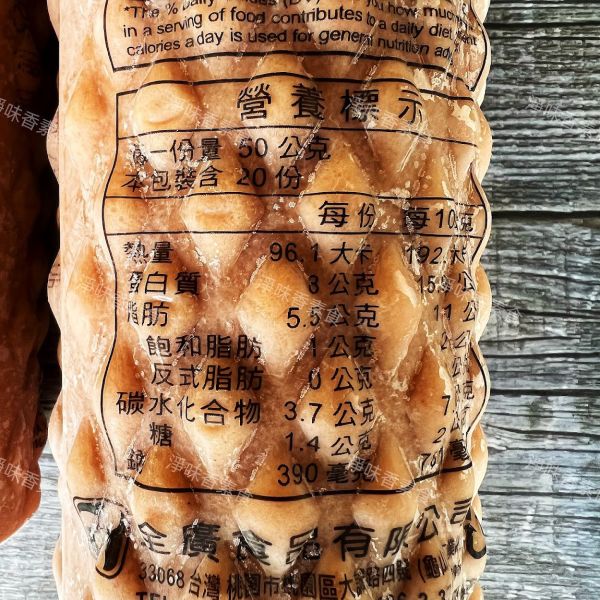 *The % Daily you how much
in a serving of food contributes to a daily diet
calories a day is used for general nutrition
營養標示
一份量 50 公克
本包裝含 20 份
每份 每10 克
熱量 96.1 大卡 192. 卡
蛋白質 8 公克 15. 公
脂肪 5.5 公克 11 公
飽和脂肪 1 公克 2
反式脂肪 0 公克
碳水化合物 3.7 公克 7.
糖 1.4 公克 2
鈉 390 毫克 毫
全廣食品有限公司
33068 台灣 桃園市桃園區大 路四
淨味香素食